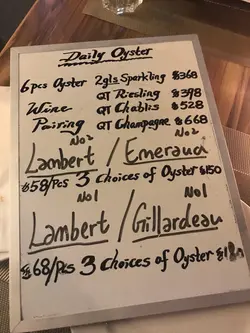 Daily Oyster
6pcs Oyster 2gls Sparkling $368
Wine QT Riesling $398
QT Chablis $528
Pairing QT Champagne $668
No2 No2
Lambert / Emeraud
$58/Pcs 3 Choices of Oyster $150
No1 No1
Lambert / Gillardeau
$68/Pcs 3 Choices of Oyster